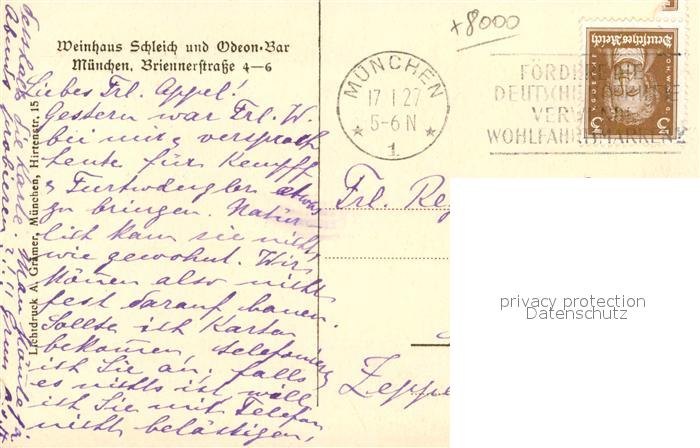 +8000
Weinhaus Schleich und Odeon-Bar
München, Briennerstraße 4—6
Liebes Frl. Appel!
Gestern war Frl. W.
bei mir, versprach
heute für Kempff
& Furtwängler etwas
zu bringen. Natür-
lich kam sie nicht
wie gewohnt. Wir
können also nicht
fest darauf bauen.
Sollte ich Karten
bekommen, telefoniere
ich Sie an; falls
es nichts ist will
ich Sie mit Telefon
nicht belästigen,
deshalb die Karte.
Abends probieren
Lichtdruck A. Grämer, München, Hirtenstr. 15
MÜNCHEN
17 1 27
5-6 N
1.
FÖRDERT DIE
DEUTSCHE
VERWENDET
WOHLFAHRTSMARKEN
Deutsches Reich
3
Frl.
privacy protection
Datenschutz